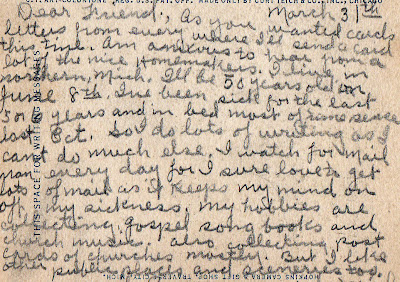 C.T. ART-COLORTONE REG. U.S. PAT. OFF. MADE ONLY BY CURT TEICH & CO., INC., CHICAGO
Dear Friend, As you wanted cards March 31th
letters from every where I'll send a card
this time. Am anxious to hear from a
lot of the nice Homemakers. I live in
northern, Mich. I'll be 50 years old on
June 8th I've been sick for the last
5 or 6 years and in bed most of time
last Oct. So I do lots of writing as I
can't do much else. I watch for mail
man every day for I sure love to get
lots of mail as it keeps my mind on
off my sickness. my hobbies are
collecting Gospel song books and
church music. also collecting post
cards of churches mostly. But I like
other public places and sceneries too.
THIS SPACE FOR WRITING MESSAGES
HOPKINS CAMERA & GIFT SHOP, TRAVERSE CITY, MICH.